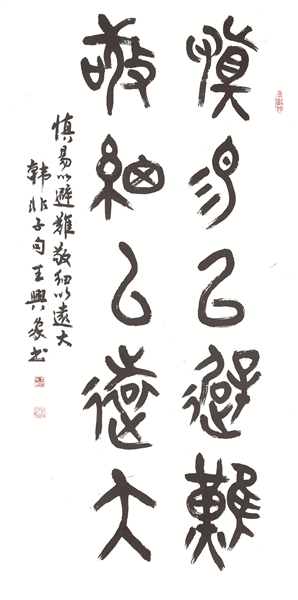 慎易以避難
敬細以遠大
慎易以避難敬細以遠大
韩非子句王興家书